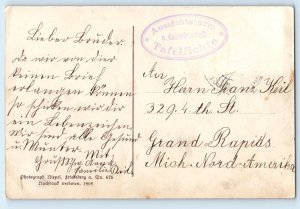 Lieber Bruder.
Da wir von dir
keinen Brief
erlangen können
so schicken wir dir
ein Lebenzeichen
Wir sind alle Gesund
u Munter. Mit
Gruß
Familie Keil
Photograph. Niepel, Friedeberg a. Qu. 675
Nachdruck verboten. 1909
Aussichtsturm
Tafelfichte
An
Herrn Franz Keil
329.4.th St.
Grand Rapids
Mich. Nord-Amerika